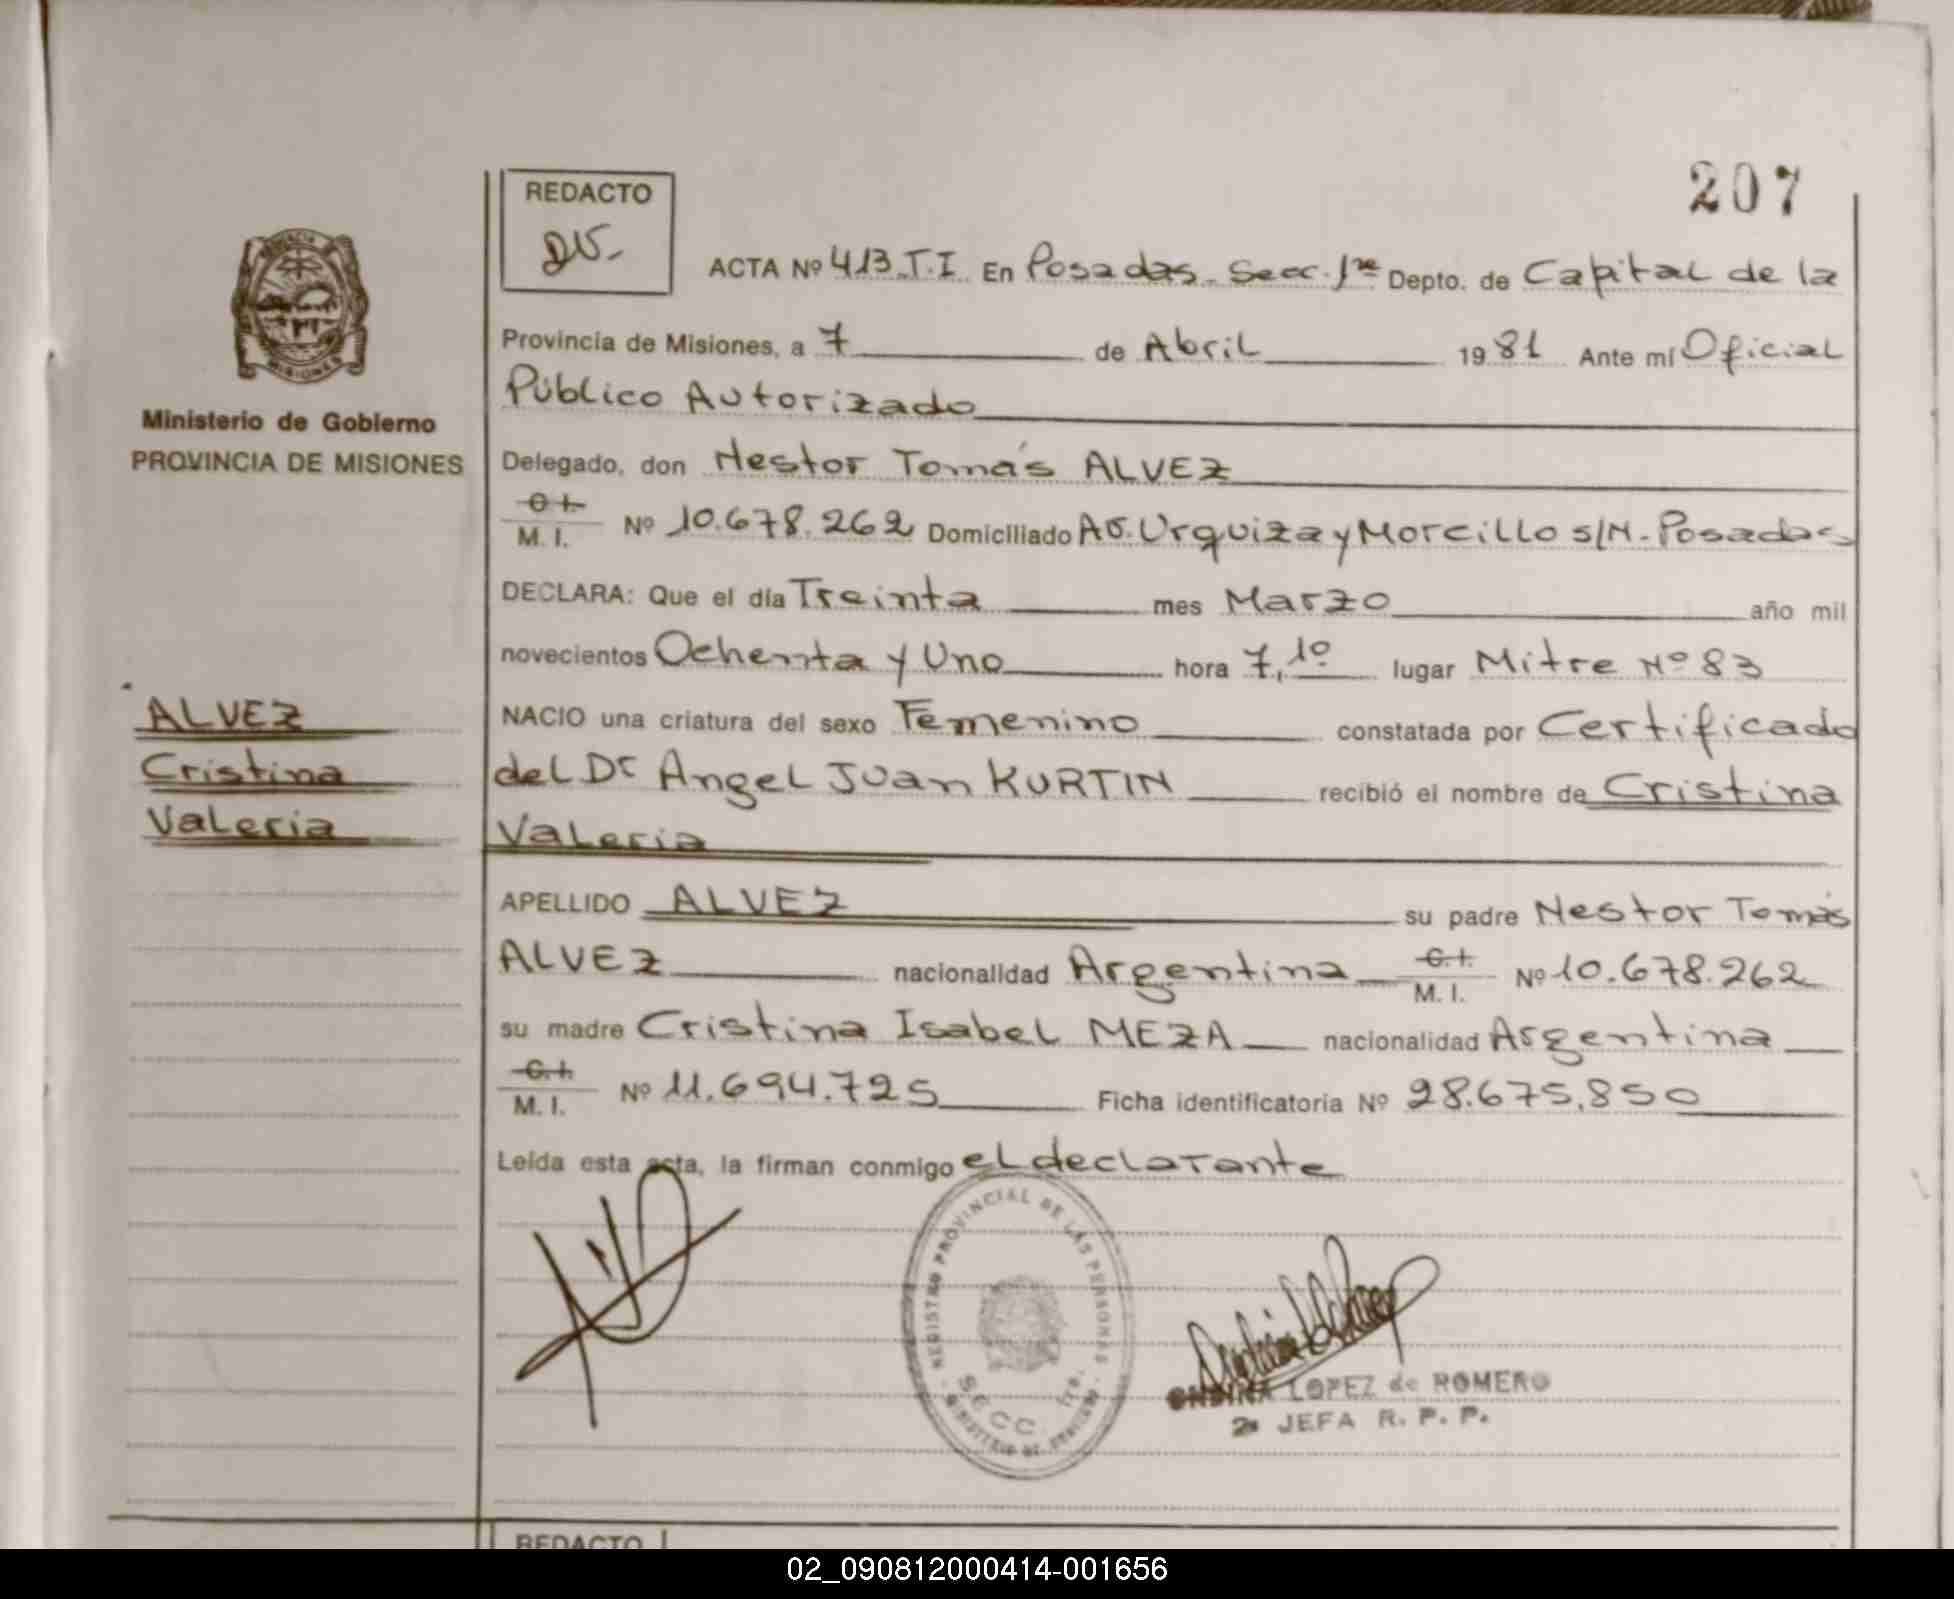 207
REDACTO
ACTA Nº 413.T.I. En Posadas. Secc. 1ra Depto. de Capital de la
Provincia de Misiones, a 7 de Abril 1981 Ante mí Oficial
Público Autorizado
Ministerio de Gobierno
PROVINCIA DE MISIONES
Delegado, don Nestor Tomás ALVEZ
C.I. M. I. Nº 10.678.262 Domiciliado Av. Urquiza y Morcillo s/N. Posadas
DECLARA: Que el día Treinta mes Marzo año mil
novecientos Ochenta y Uno hora 7,10 lugar Mitre Nº 83
ALVEZ
Cristina
Valeria
NACIO una criatura del sexo Femenino constatada por Certificado
del Dr Angel Juan KURTIN recibió el nombre de Cristina
Valeria
APELLIDO ALVEZ su padre Nestor Tomás
ALVEZ nacionalidad Argentina C.I. M. I. Nº 10.678.262
su madre Cristina Isabel MEZA nacionalidad Argentina
C.I. M. I. Nº 11.694.725 Ficha identificatoria Nº 28.675.850
Leída esta acta, la firman conmigo el declarante
REGISTRO PROVINCIAL DE LAS PERSONAS
SECC 1ra.
LOPEZ de ROMERO
JEFA R. P. P.
REDACTO
02_090812000414-001656